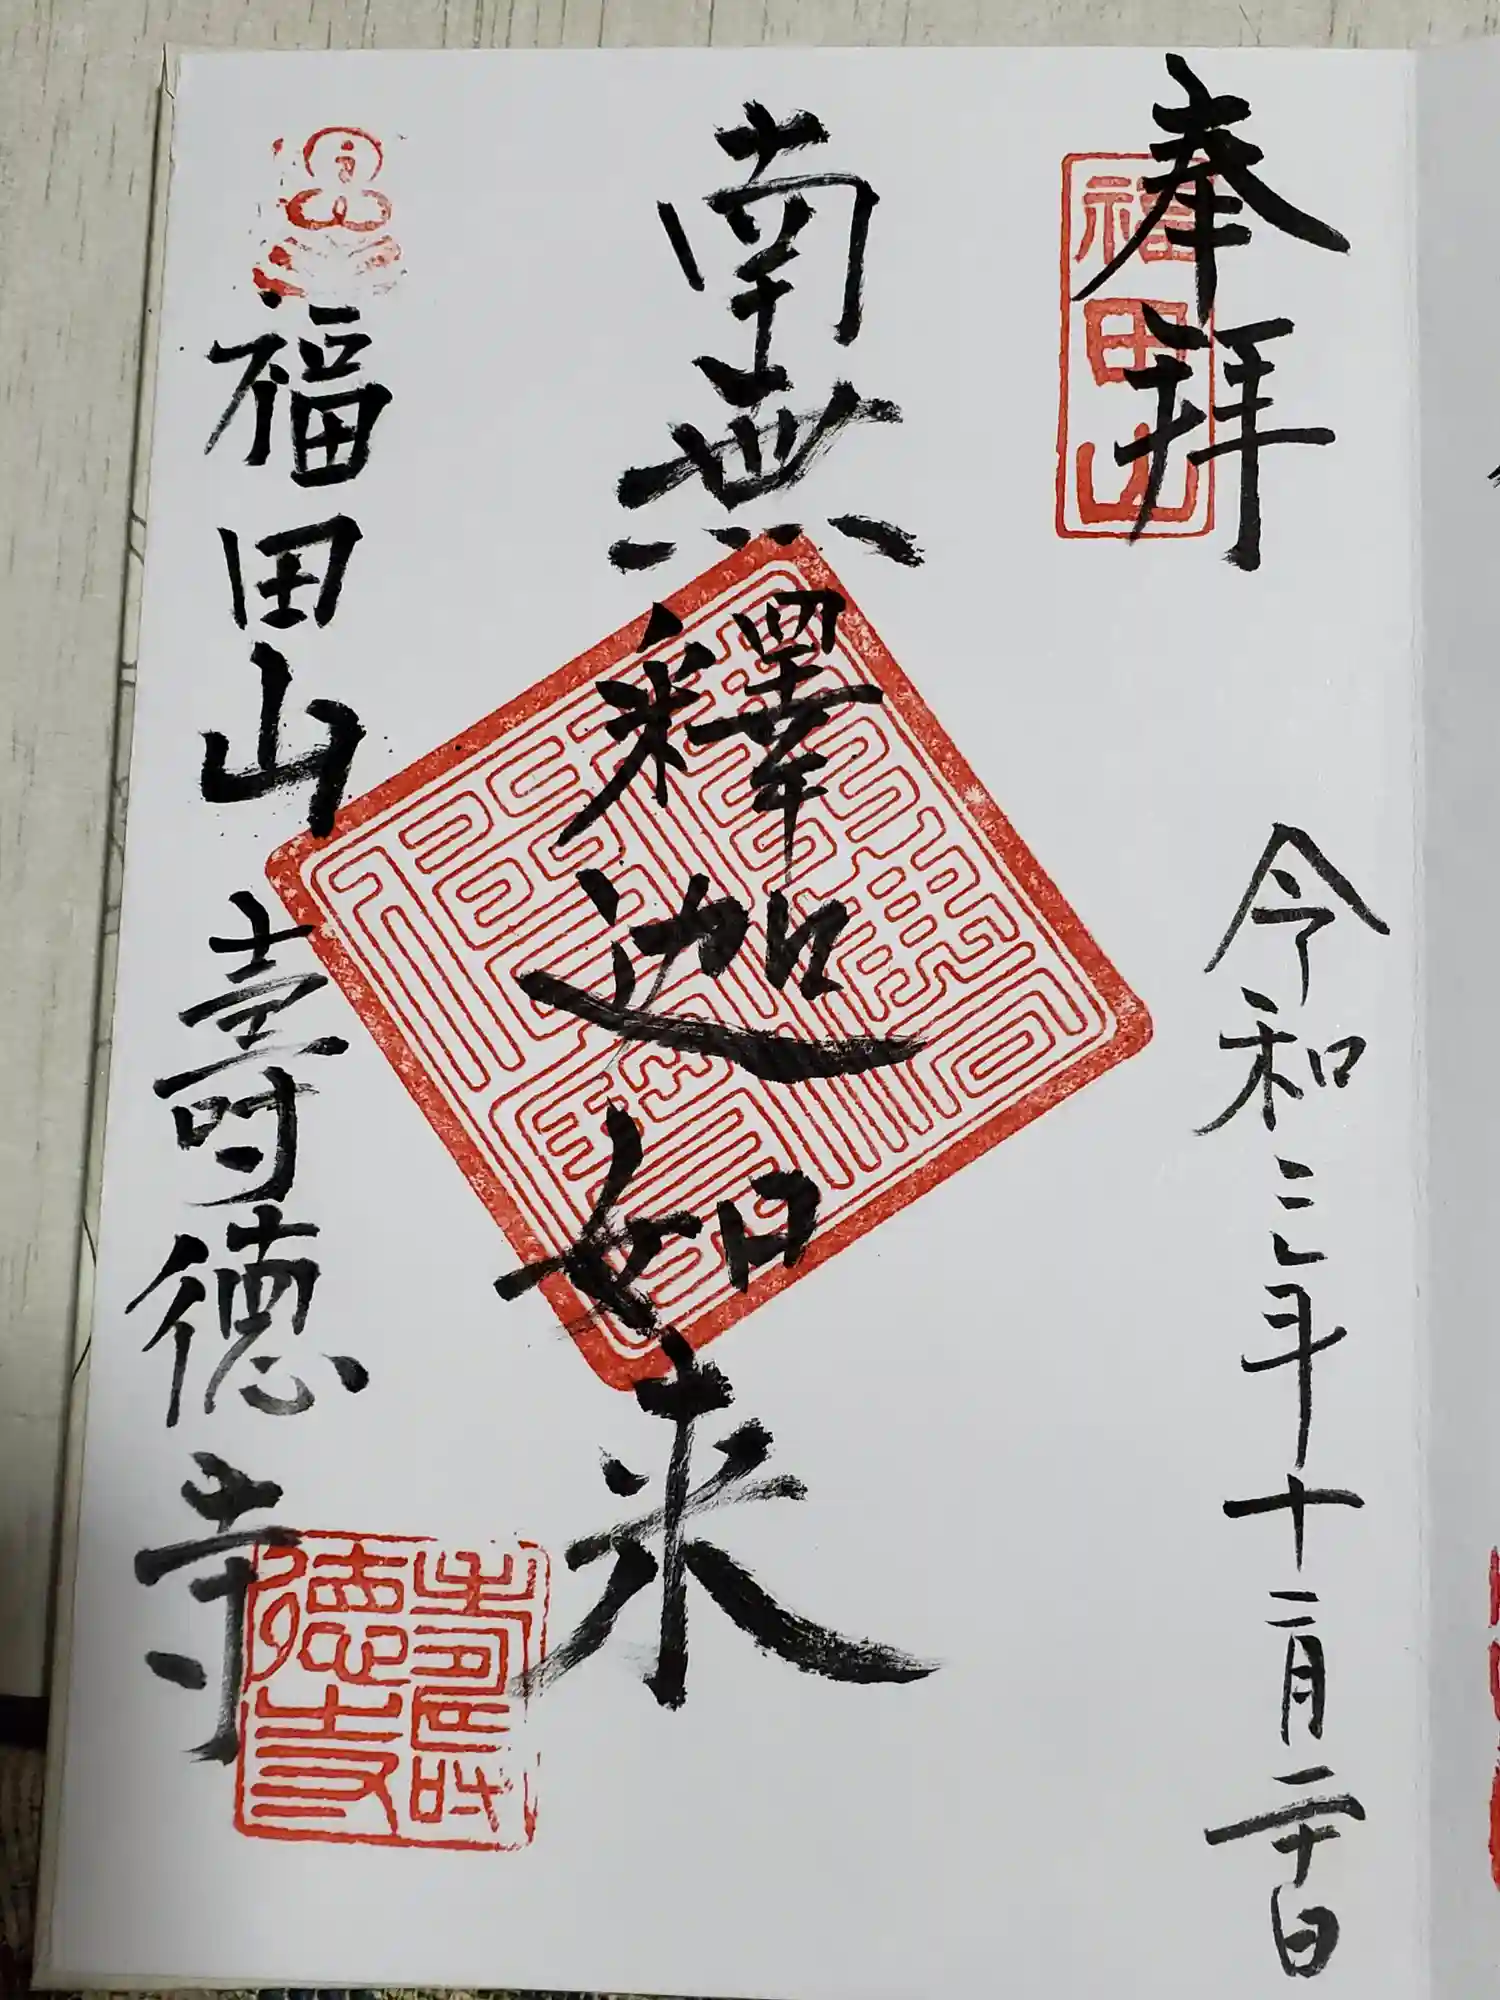 奉拝
福田山
令和三年十二月二十日
南無釋迦如来
福田山壽徳寺
壽徳寺